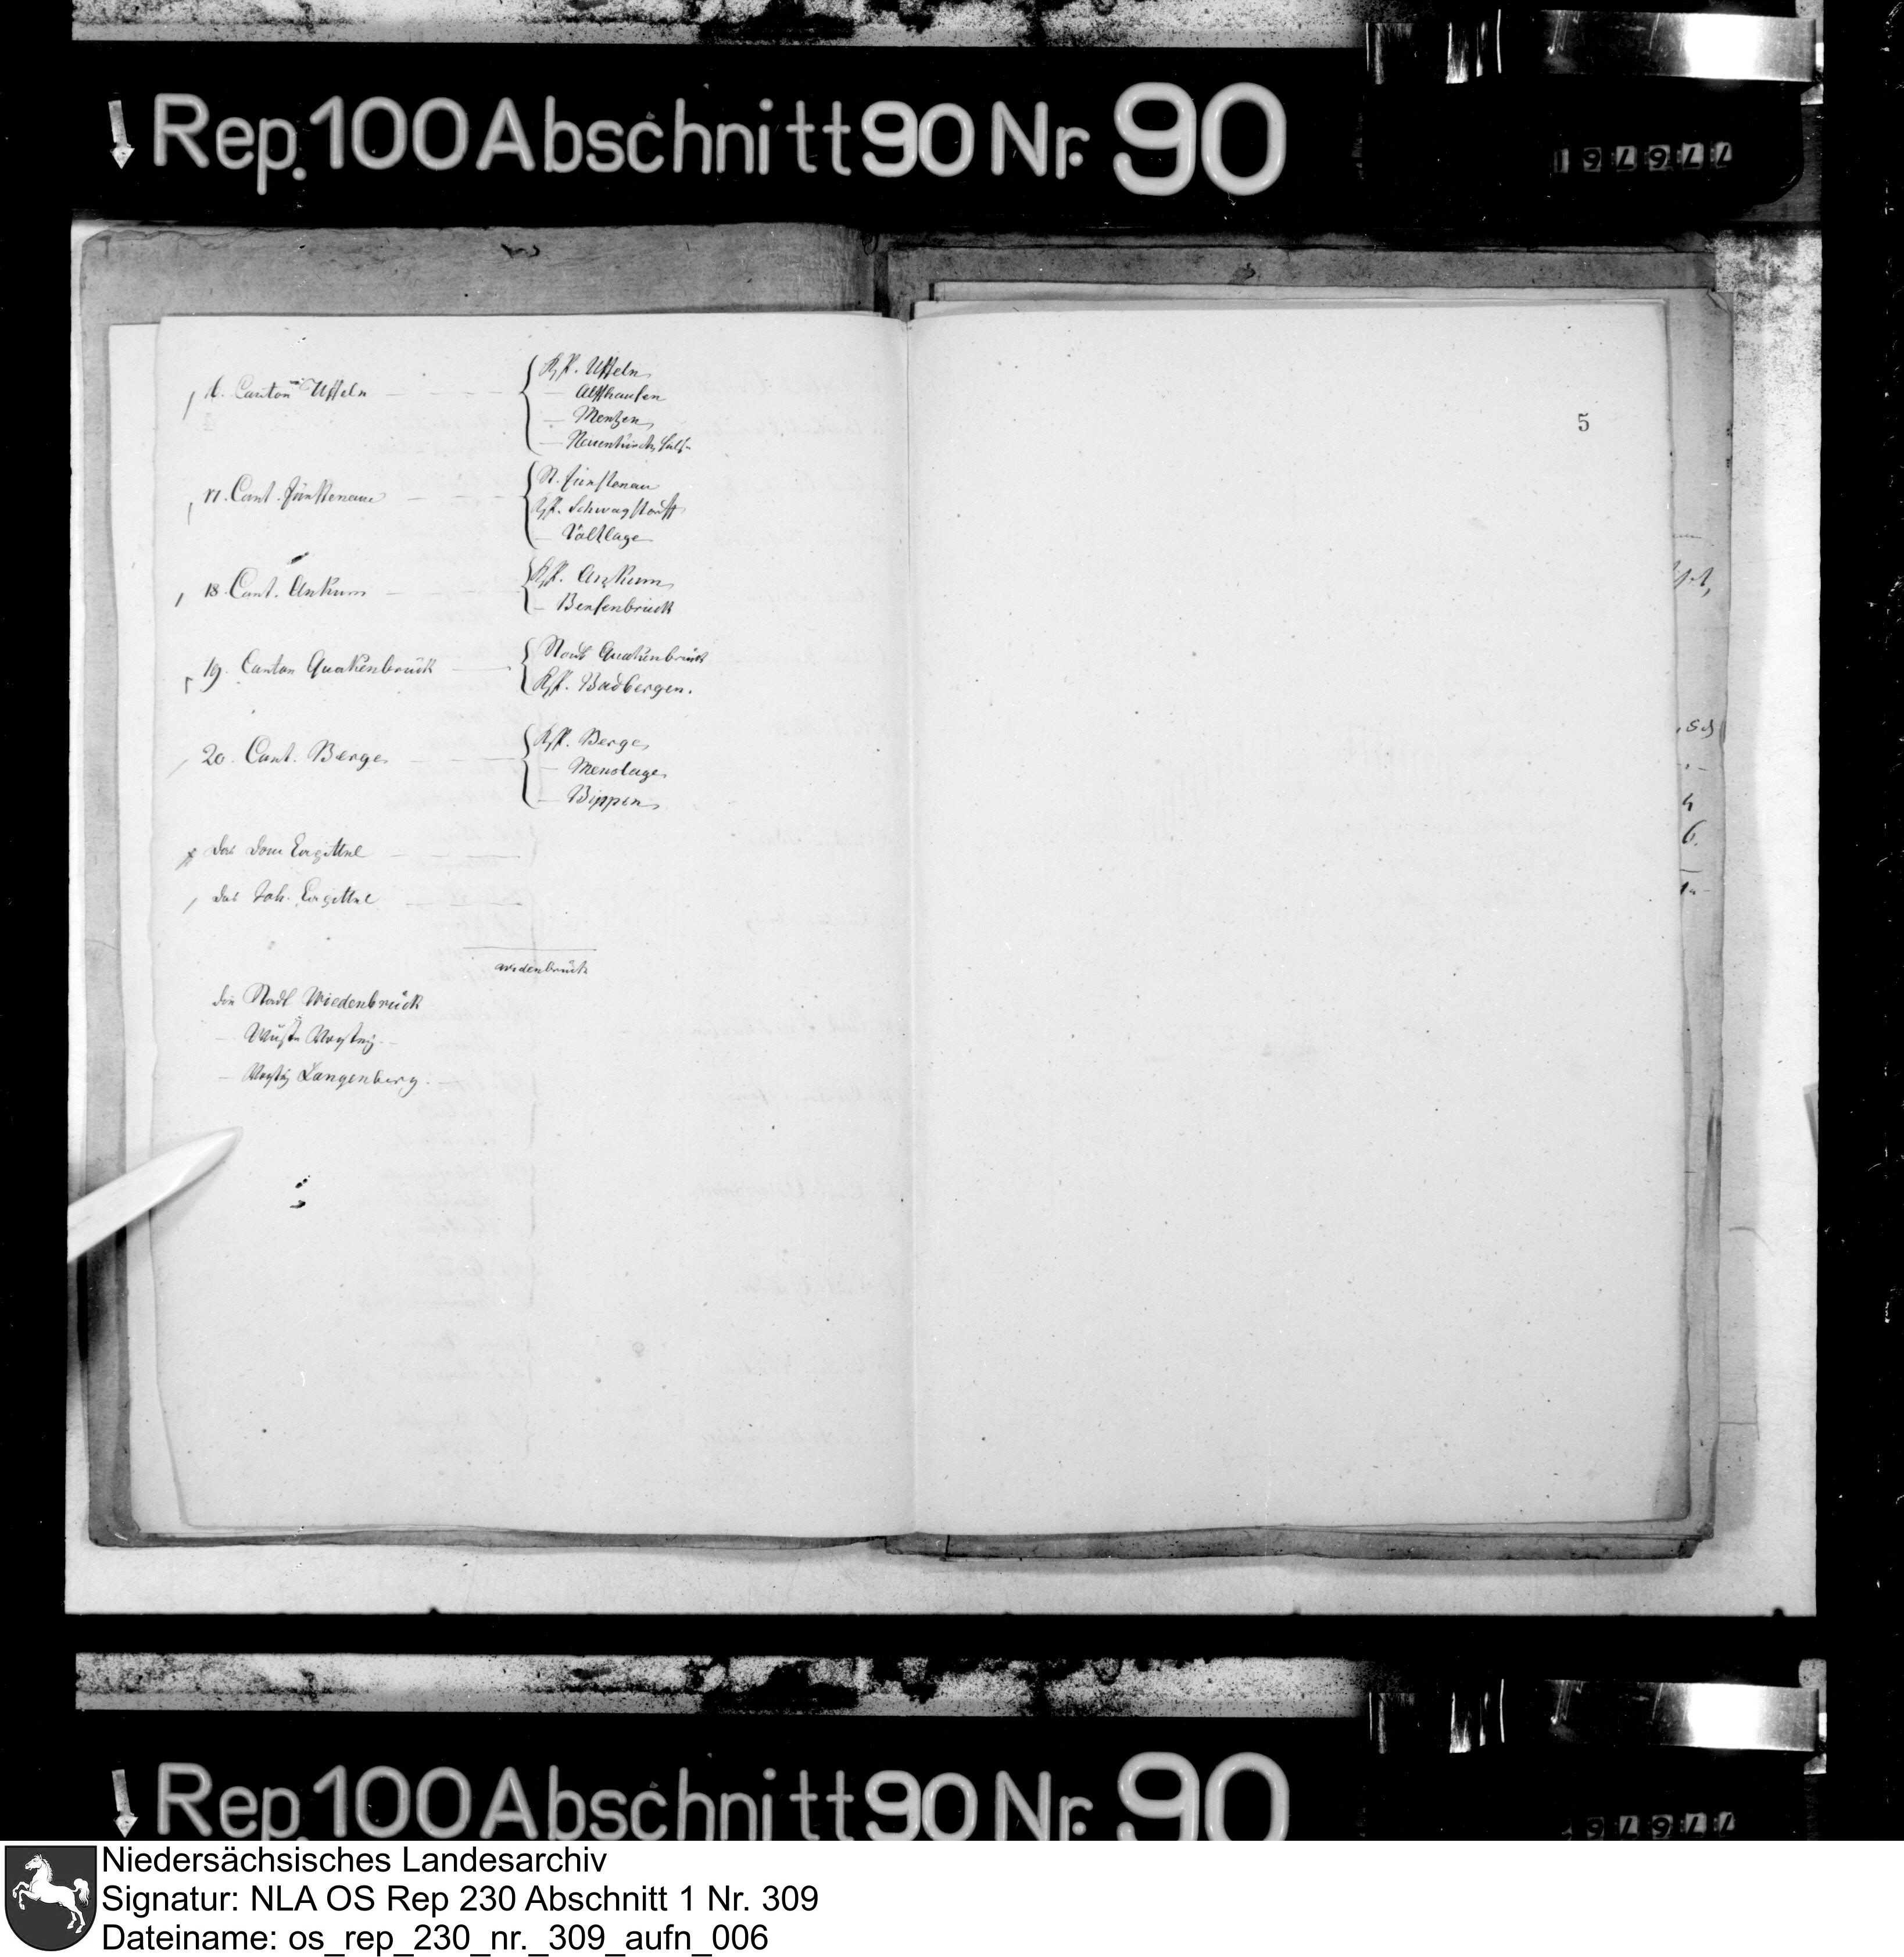 Rep. 100 Abschnitt 90 Nr. 90
5
16. Canton Uffeln
Ksp. Uffeln
— Alfhausen
— Merzen
— Neuenkirch. hüls.
17. Cant. Fürstenau
St. Fürstenau
Ksp. Schwagstorff
— Voltlage
18. Cant. Ankum
Ksp. Ankum
— Bersenbrück
19. Canton Quakenbrück
Stadt Quakenbrück
Ksp. Badbergen.
20. Cant. Berge
Ksp. Berge
— Menslage
— Bippen
das Dom Capittul
das Joh. Capittul
Wiedenbrück
die Stadt Wiedenbrück
— Vogtey Langenberg.
Rep. 100 Abschnitt 90 Nr. 90
Niedersächsisches Landesarchiv
Signatur: NLA OS Rep 230 Abschnitt 1 Nr. 309
Dateiname: os_rep_230_nr._309_aufn_006